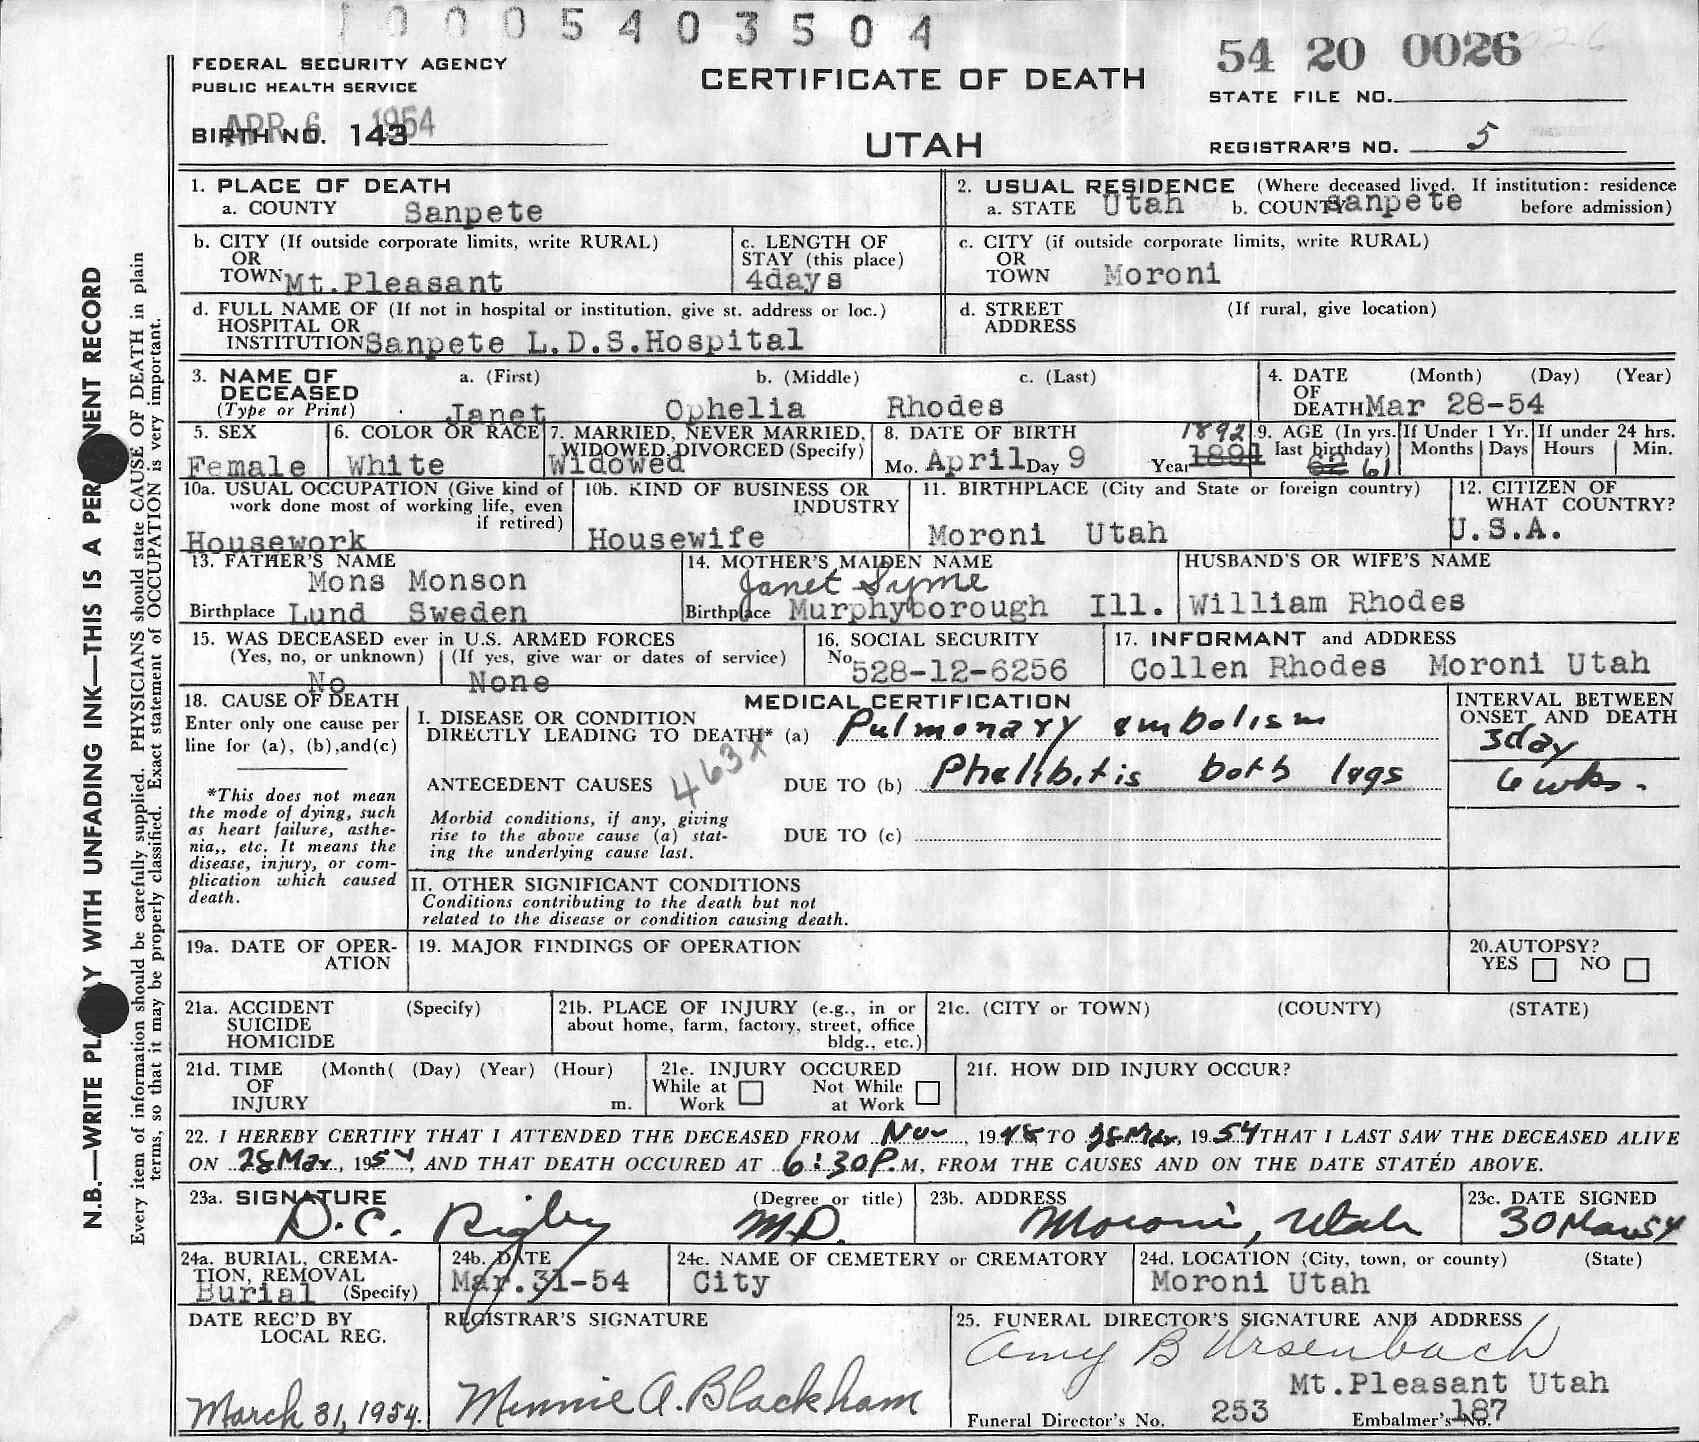 1 0 0 0 5 4 0 3 5 0 4
FEDERAL SECURITY AGENCY
PUBLIC HEALTH SERVICE
APR 6 1954
BIRTH NO. 143
CERTIFICATE OF DEATH
UTAH
54 20 0026
STATE FILE NO.
REGISTRAR'S NO. 5
N.B.—WRITE PLAINLY WITH UNFADING INK—THIS IS A PERMANENT RECORD
Every item of information should be carefully supplied. PHYSICIANS should state CAUSE OF DEATH in plain
terms, so that it may be properly classified. Exact statement of OCCUPATION is very important.
1. PLACE OF DEATH
a. COUNTY Sanpete
2. USUAL RESIDENCE (Where deceased lived. If institution: residence
a. STATE Utah b. COUNTY sanpete before admission)
b. CITY (If outside corporate limits, write RURAL)
OR
TOWN Mt.Pleasant
c. LENGTH OF
STAY (this place)
4days
c. CITY (if outside corporate limits, write RURAL)
OR
TOWN Moroni
d. FULL NAME OF (If not in hospital or institution, give st. address or loc.)
HOSPITAL OR
INSTITUTION Sanpete L.D.S.Hospital
d. STREET (If rural, give location)
ADDRESS
3. NAME OF a. (First) b. (Middle) c. (Last)
DECEASED
(Type or Print) Janet Ophelia Rhodes
4. DATE (Month) (Day) (Year)
OF
DEATH Mar 28-54
5. SEX
Female
6. COLOR OR RACE
White
7. MARRIED, NEVER MARRIED,
WIDOWED, DIVORCED (Specify)
Widowed
8. DATE OF BIRTH 1892
Mo. April Day 9 Year 1891
9. AGE (In yrs.
last birthday)
62 61
If Under 1 Yr.
Months Days
If under 24 hrs.
Hours Min.
10a. USUAL OCCUPATION (Give kind of
work done most of working life, even
if retired)
Housework
10b. KIND OF BUSINESS OR
INDUSTRY
Housewife
11. BIRTHPLACE (City and State or foreign country)
Moroni Utah
12. CITIZEN OF
WHAT COUNTRY?
U.S.A.
13. FATHER'S NAME
Mons Monson
Birthplace Lund Sweden
14. MOTHER'S MAIDEN NAME
Janet Syme
Birthplace Murphyborough Ill.
HUSBAND'S OR WIFE'S NAME
William Rhodes
15. WAS DECEASED ever in U.S. ARMED FORCES
(Yes, no, or unknown) (If yes, give war or dates of service)
No None
16. SOCIAL SECURITY
No. 528-12-6256
17. INFORMANT and ADDRESS
Collen Rhodes Moroni Utah
18. CAUSE OF DEATH
Enter only one cause per
line for (a), (b), and (c)
*This does not mean
the mode of dying, such
as heart failure, asthe-
nia,, etc. It means the
disease, injury, or com-
plication which caused
death.
MEDICAL CERTIFICATION
I. DISEASE OR CONDITION
DIRECTLY LEADING TO DEATH* (a) Pulmonary embolism
463x
ANTECEDENT CAUSES DUE TO (b) Phelibitis both legs
Morbid conditions, if any, giving
rise to the above cause (a) stat-
ing the underlying cause last.
DUE TO (c)
INTERVAL BETWEEN
ONSET AND DEATH
3day
6 wks.
II. OTHER SIGNIFICANT CONDITIONS
Conditions contributing to the death but not
related to the disease or condition causing death.
19a. DATE OF OPER-
ATION
19. MAJOR FINDINGS OF OPERATION
20.AUTOPSY?
YES NO
21a. ACCIDENT (Specify)
SUICIDE
HOMICIDE
21b. PLACE OF INJURY (e.g., in or
about home, farm, factory, street, office
bldg., etc.)
21c. (CITY or TOWN) (COUNTY) (STATE)
21d. TIME (Month( (Day) (Year) (Hour)
OF
INJURY m.
21e. INJURY OCCURED
While at Not While
Work at Work
21f. HOW DID INJURY OCCUR?
22. I HEREBY CERTIFY THAT I ATTENDED THE DECEASED FROM Nov, 1948 TO 28 Mar, 1954 THAT I LAST SAW THE DECEASED ALIVE
ON 28 Mar, 1954, AND THAT DEATH OCCURED AT 6:30P.M, FROM THE CAUSES AND ON THE DATE STATED ABOVE.
23a. SIGNATURE (Degree or title)
D.C. Rigby M.D.
23b. ADDRESS
Moroni, Utah
23c. DATE SIGNED
30 Mar 54
24a. BURIAL, CREMA-
TION, REMOVAL
Burial (Specify)
24b. DATE
Mar.31-54
24c. NAME OF CEMETERY or CREMATORY
City
24d. LOCATION (City, town, or county) (State)
Moroni Utah
DATE REC'D BY
LOCAL REG.
March 31, 1954.
REGISTRAR'S SIGNATURE
Minnie A. Blackham
25. FUNERAL DIRECTOR'S SIGNATURE AND ADDRESS
Amy B Ursenbach
Mt.Pleasant Utah
Funeral Director's No. 253 Embalmer's No. 187